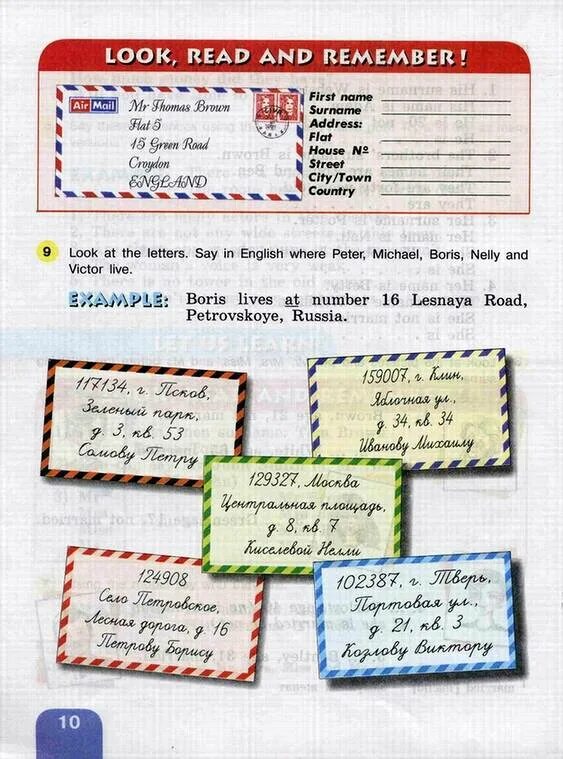 LOOK, READ AND REMEMBER!
Air Mail
Mr Thomas Brown
Flat 5
15 Green Road
Croydon
ENGLAND
First name
Surname
Address:
Flat
House №
Street
City/Town
Country
9 Look at the letters. Say in English where Peter, Michael, Boris, Nelly and
Victor live.
EXAMPLE: Boris lives at number 16 Lesnaya Road,
Petrovskoye, Russia.
117134, г. Псков,
Зеленый парк,
д 3, кв. 53
Сомову Петру
159007, г. Клин,
Яблочная ул.,
д. 34, кв. 34
Иванову Михаилу
129327, Москва
Центральная площадь,
д. 8, кв. 7
Киселевой Нелли
124908
Село Петровское,
Лесная дорога, д. 16
Петрову Борису
102387, г. Тверь,
Портовая ул.,
д. 21, кв. 3
Козлову Виктору
10